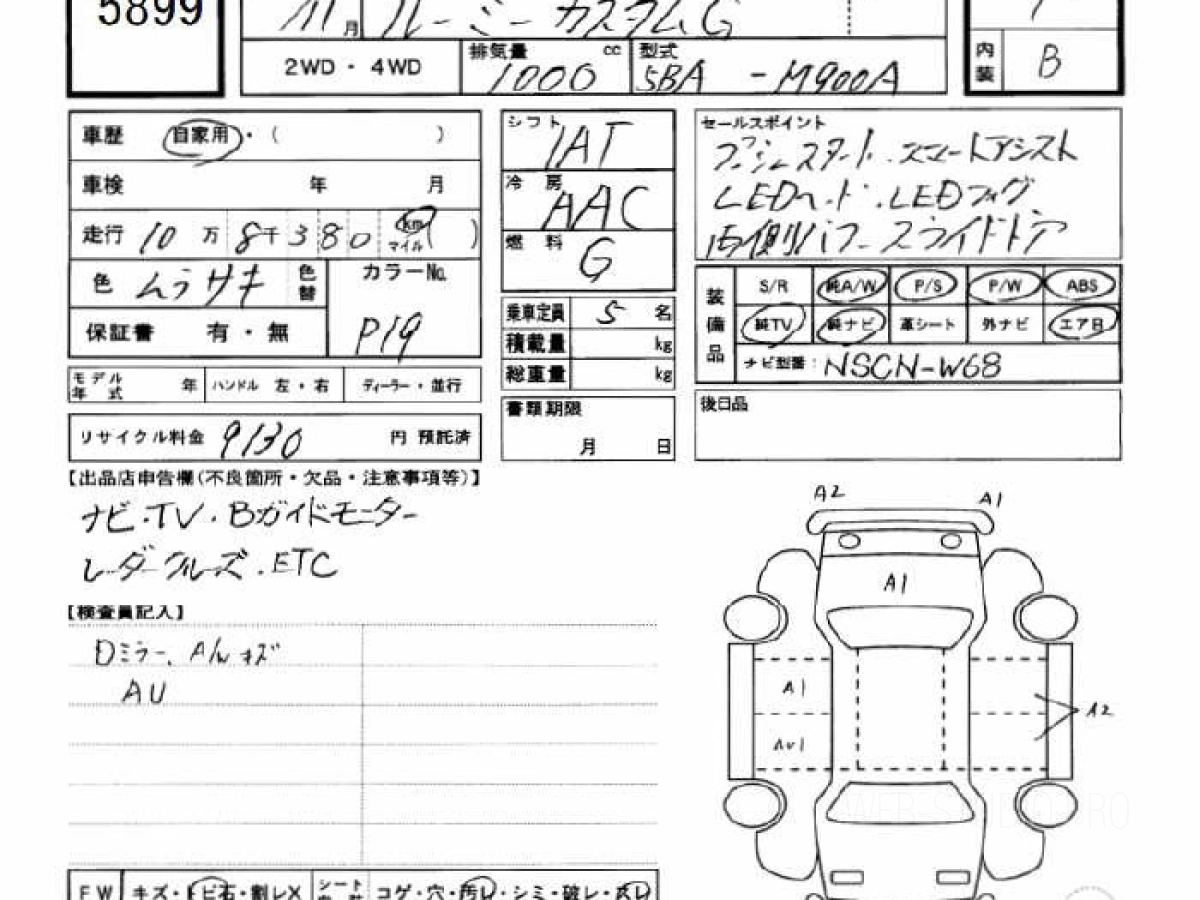 5899
11月 ルーミー カスタムG
2WD・4WD 排気量 1000 cc 型式 5BA -M900A
内装 B
車歴 自家用・( )
車検 年 月
走行 10万8千380 km マイル( )
色 ムラサキ 色替 カラーNo. P19
保証書 有・無
モデル年式 年 ハンドル 左・右 ディーラー・並行
リサイクル料金 9130 円 預託済
シフト IAT
冷房 AAC
燃料 G
乗車定員 5 名
積載量 kg
総重量 kg
書類期限
月 日
セールスポイント
プッシュスタート.スマートアシスト
LEDヘッド.LEDフォグ
両側パワースライドドア
装備品 S/R 純A/W P/S P/W ABS
純TV 純ナビ 革シート 外ナビ エアB
ナビ型番: NSCN-W68
後日品
【出品店申告欄(不良箇所・欠品・注意事項等)】
ナビ.TV.Bガイドモニター
レーダークルーズ.ETC
【検査員記入】
Dミラー、A/Wキズ
AU
A2 A1
A1
A1
A2
AU1
WEB-STUDIO PRO
FW キズ・トビ石・割レX シート コゲ・穴・汚レ・シミ・破レ・スレ